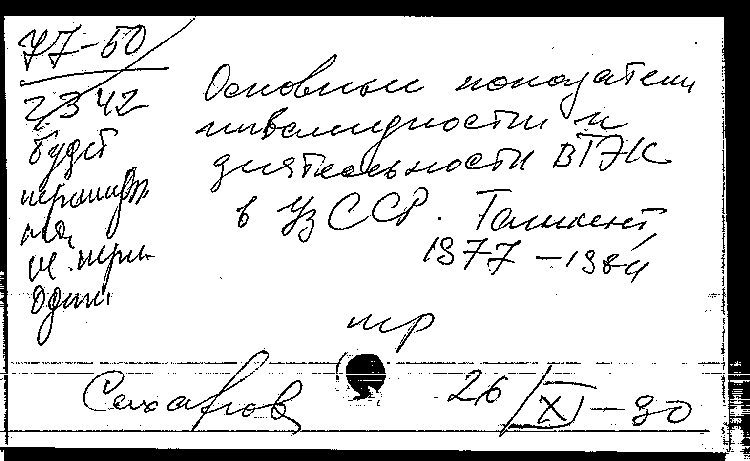 77-50
2342
будет
см. пери
один.
Основные показатели
инвалидности и
деятельности ВТЭК
в УзССР. Ташкент,
1977 – 1984
тр
Сахаров
26/XI – 90